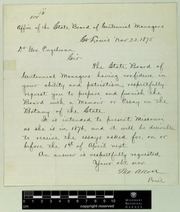 Office of the State Board of Centennial Managers
St Louis Nov. 22. 1875
Dr Geo. Engelman
Sir
The State Board of
Centennial Managers having confidence in
your ability and patriotism, respectfully
request you to prepare and furnish the
Board with a Memoir or Essay on the
Botany of the State.
It is intended to present Missouri
as she is in 1876, and it will be desirable
to receive the essays asked for, on or
before the 1st of April next.
An answer is respectfully requested.
Your obt svt
Prest